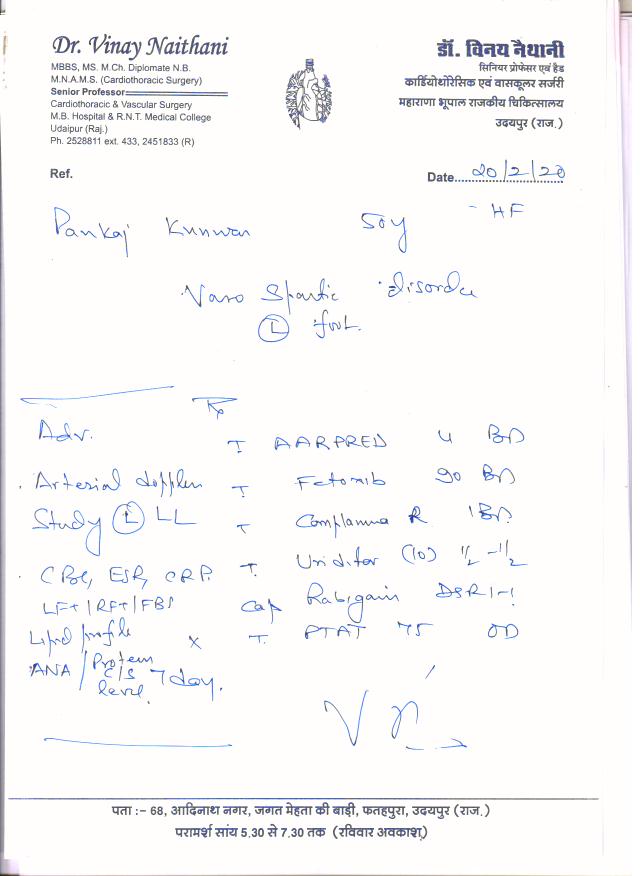 Dr. Vinay Naithani
MBBS, MS. M.Ch. Diplomate N.B.
M.N.A.M.S. (Cardiothoracic Surgery)
Senior Professor
Cardiothoracic & Vascular Surgery
M.B. Hospital & R.N.T. Medical College
Udaipur (Raj.)
Ph. 2528811 ext. 433, 2451833 (R)
डॉ. विनय नैथानी
सिनियर प्रोफेसर एवं हैड
कार्डियोथोरेसिक एवं वासकूलर सर्जरी
महाराणा भूपाल राजकीय चिकित्सालय
उदयपुर (राज.)
Ref.
Date 20/2/20
Pankaj Kunwar 50y - HF
Vaso Spastic disorder
(L) foot.
Rx
Adv.
Arterial doppler
Study (L) LL
CBC, ESR, CRP.
LFT/RFT/FBS
Lipid profile
ANA / Protein
C/S
level.
T AARPRED 4 BD
T Fetomib 90 BD
T Complamina R 1BD
T. (10) 1/2 - 1/2
Cap Rabigain DSR 1-1
T. PTAT 75 OD
x 7 day.
पता :– 68, आदिनाथ नगर, जगत मेहता की बाड़ी, फतहपुरा, उदयपुर (राज.)
परामर्श सांय 5.30 से 7.30 तक (रविवार अवकाश)